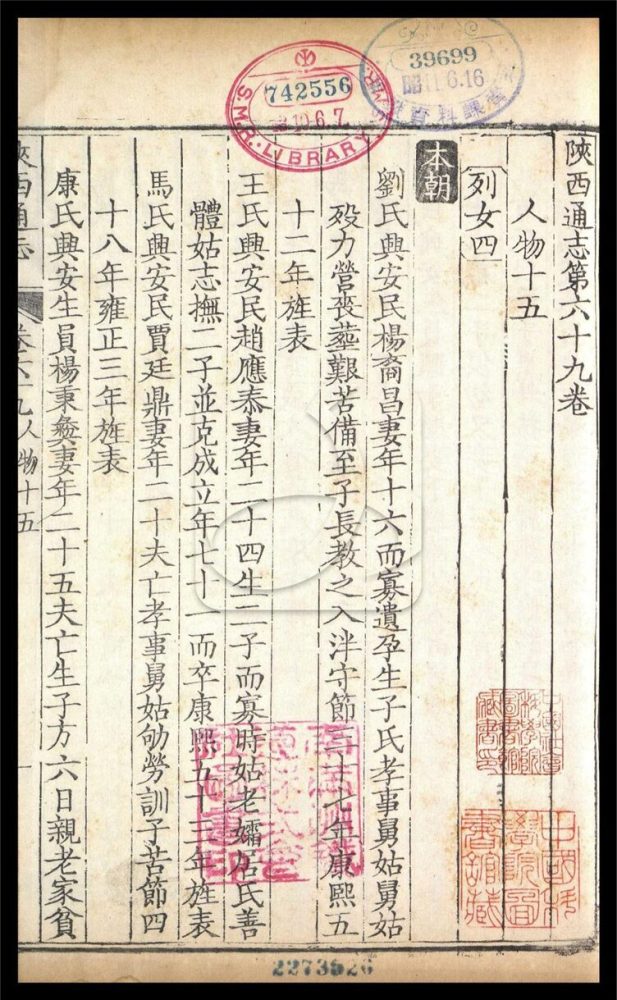 陝西通志第六十九卷
人物十五
列女四
本朝
劉氏興安民楊裔昌妻年十六而寡遺孕生子氏孝事舅姑舅姑
歿力營喪葬艱苦備至子長教之入泮守節三十七年康熙五
十二年旌表
王氏興安民趙應泰妻年二十四生二子而寡時姑老孀居氏善
體姑志撫二子並克成立年七十一而卒康熙五十三年旌表
馬氏興安民賈廷鼎妻年二十夫亡孝事舅姑劬勞訓子苦節四
十八年雍正三年旌表
康氏興安生員楊秉彝妻年二十五夫亡生子方六日親老家貧
陝西通志 卷六十九 人物十五 一
742556
10.6.7
S.M.R. LIBRARY
39699
昭11.6.16
中國科學院圖書館藏
2273526